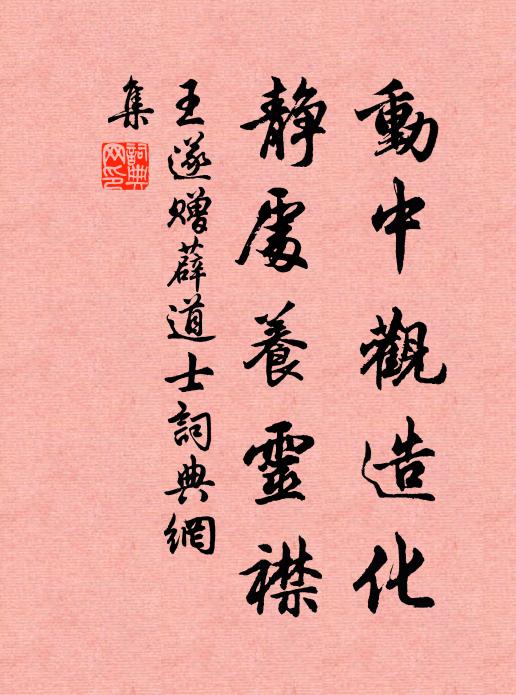 動中觀造化
靜處養靈襟
王遂贈薜道士詞典網
集
詞典
网印